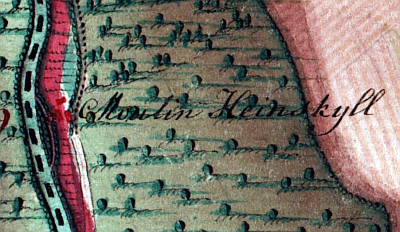 Moulin Heinskyll